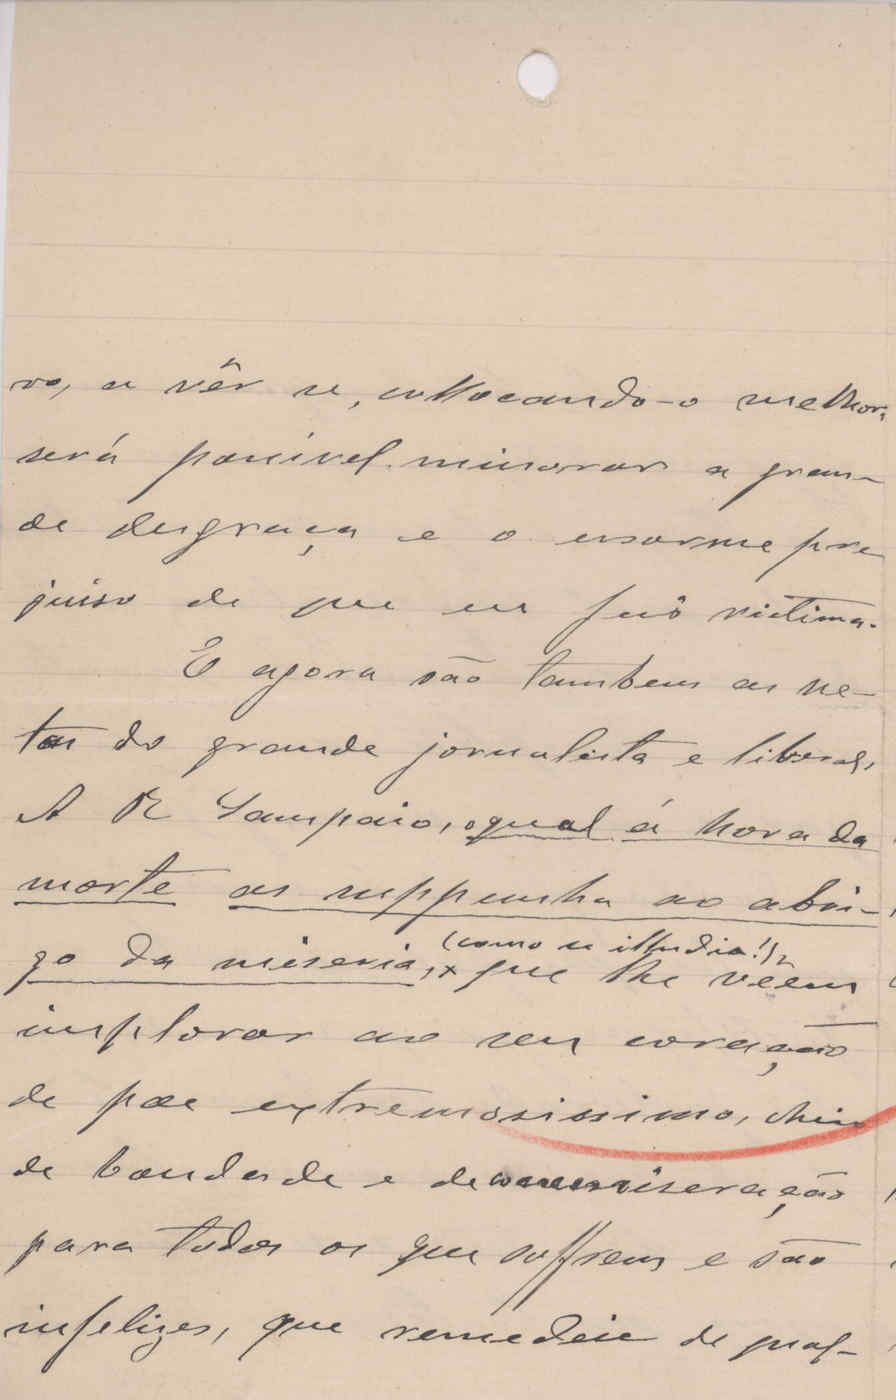 ro, a vêr se, collocando-o melhor,
será possivel minorar a gran-
de desgraça e o enorme pre
juiso de que eu fui victima.
E agora são tambem as ne-
tas do grande jornalista e liberal,
A R Sampaio, o qual á hora da
morte as suppunha ao abri-
go da miseria, (como se illudia!),
x que lhe vêem
implorar ao seu coração
de pae extremosissimo, cheio
de bondade e de comiseração
para todos os que soffrem e são
infelizes, que remedeie de qual-